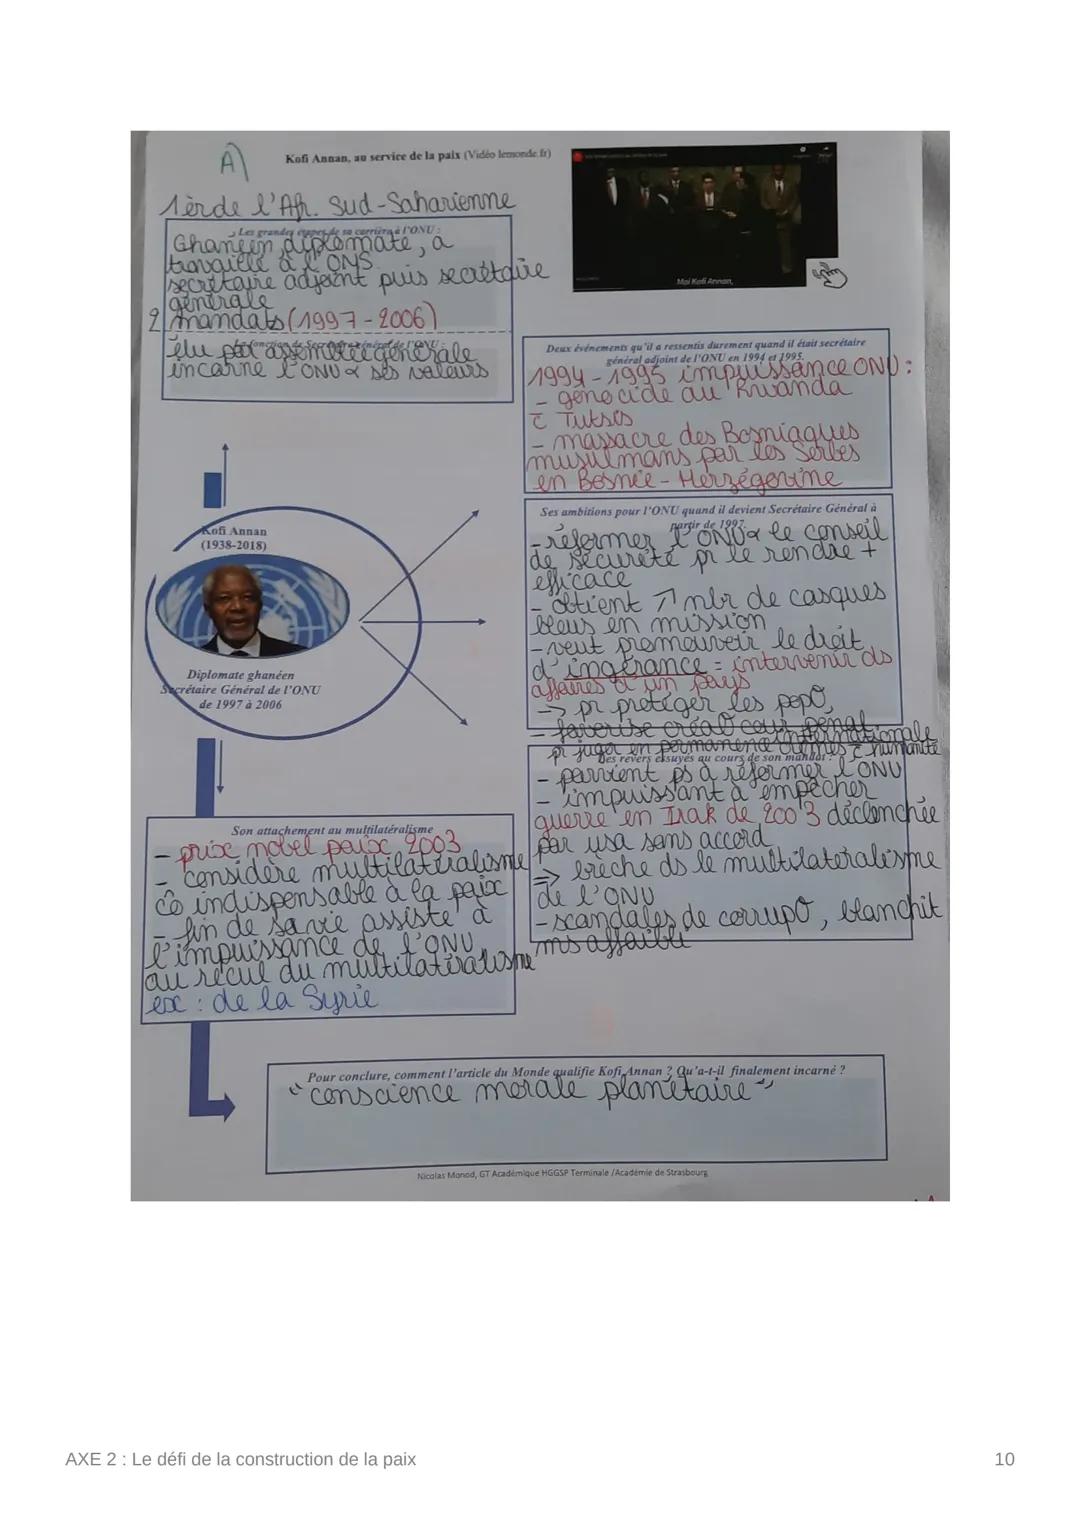 A)
Kofi Annan, au service de la paix (Vidéo lemonde.fr)
1èr de l'Afr. Sud-Saharienne
Les grandes étapes de sa carrière à l'ONU :
Ghanéen, diplomate, a
travaillé à l'OMS
secrétaire adjoint puis secrétaire
générale
2 mandats (1997-2006)
La fonction de Secrétaire général de l'ONU :
élu par assemblée générale
incarne l'ONU & ses valeurs
Moi Kofi Annan,
Deux événements qu'il a ressentis durement quand il était secrétaire
général adjoint de l'ONU en 1994 et 1995.
1994-1995 impuissance ONU :
- génocide au Rwanda
c̄ Tutsis
- massacre des Bosniaques
musulmans par les Serbes
en Bosnie-Herzégovine
Ses ambitions pour l'ONU quand il devient Secrétaire Général à
partir de 1997.
- réformer l'ONU & le conseil
de sécurité pr le rendre +
efficace
- obtient ↗ nbr de casques
bleus en mission
- veut promouvoir le droit
d'ingérance = intervenir ds
affaires d'un pays
-> pr protéger les pop°,
- favorise créa° cour pénal
internationale
pr juger en permanence crimes c̄ humanité
Les revers essuyés au cours de son mandat :
- parvient ps à réformer l'ONU
- impuissant à empêcher
guerre en Irak de 2003 déclenchée
par usa sans accord
=> brèche ds le multilatéralisme
de l'ONU
- scandales de corrup°, blanchit
ms affaibli
Kofi Annan
(1938-2018)
Diplomate ghanéen
Secrétaire Général de l'ONU
de 1997 à 2006
Son attachement au multilatéralisme
- prix nobel paix 2003
- considère multilatéralisme
cô indispensable à la paix
- fin de sa vie assiste à
l'impuissance de l'ONU,
au recul du multilatéralisme
ex : de la Syrie
Pour conclure, comment l'article du Monde qualifie Kofi Annan ? Qu'a-t-il finalement incarné ?
"conscience morale planétaire"
Nicolas Monod, GT Académique HGGSP Terminale /Académie de Strasbourg
AXE 2 : Le défi de la construction de la paix
10